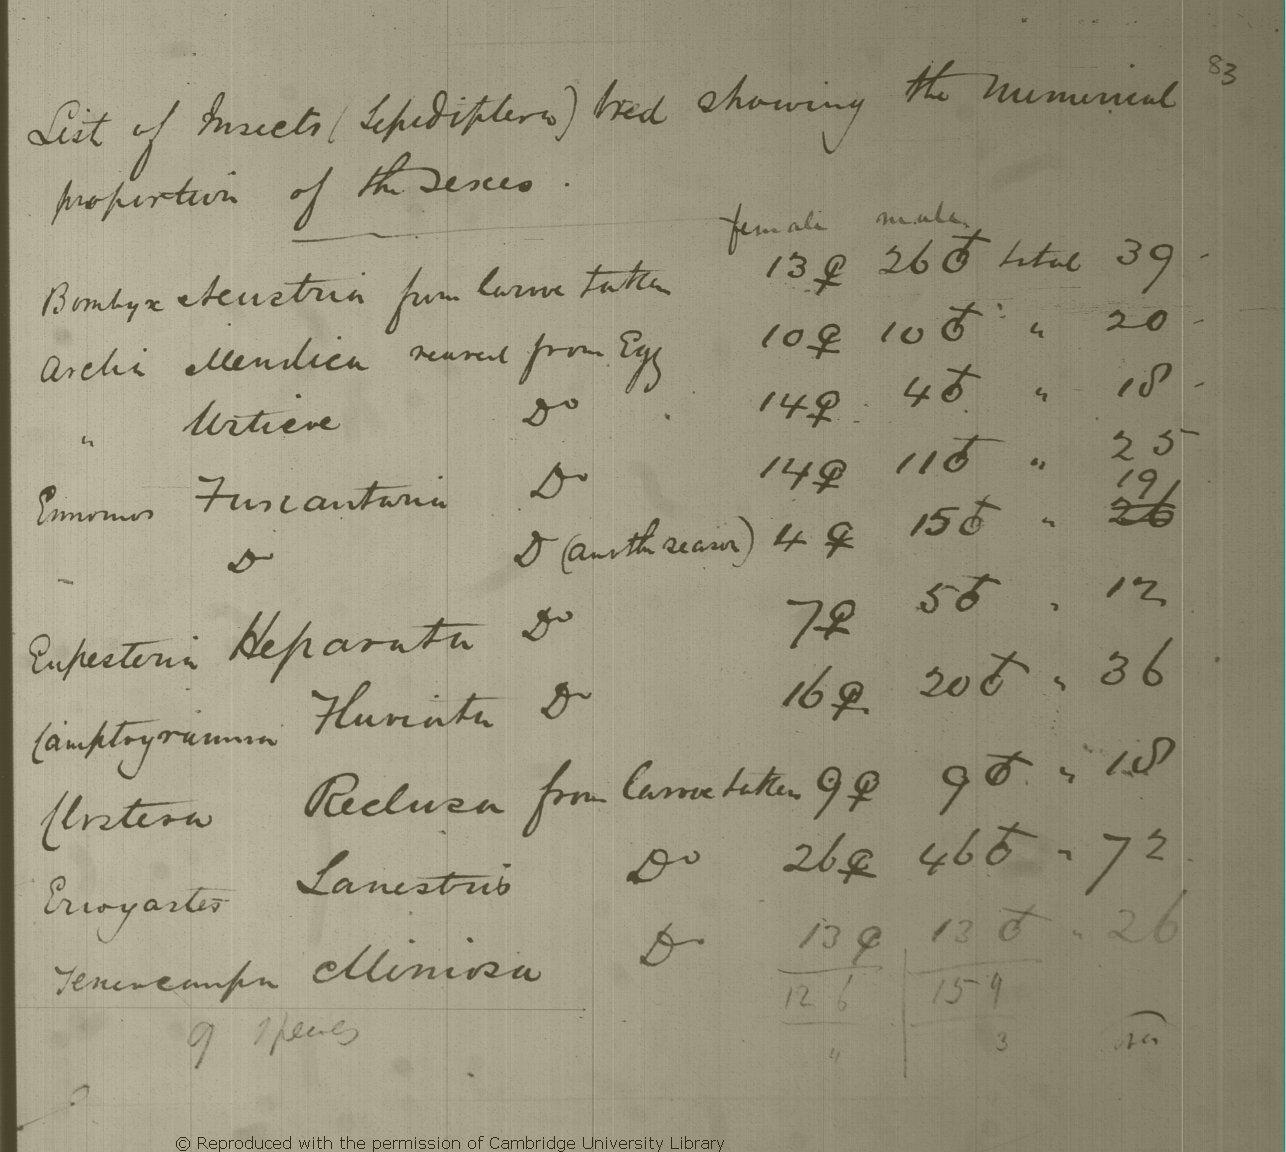 83
List of Insects (Lepidiptera) bred showing the Numerical
proportion of the Sexes.
female males
Bombyx Neustria from larvæ taken 13 ♀ 26 ♂ total 39
Arctia Mendica reared from Egg 10 ♀ 10 ♂ " 20
" Urticæ Do 14 ♀ 4 ♂ " 18
Ennomos Fuscantaria Do 14 ♀ 11 ♂ " 25
19
Do Do (another season) 4 ♀ 15 ♂ " 26
Eupesteria Heparata Do 7 ♀ 5 ♂ " 12
Camptogramma Fluviata Do 16 ♀ 20 ♂ " 36
Clostera Reclusa from larvæ taken 9 ♀ 9 ♂ " 18
Eriogaster Lanestris Do 26 ♀ 46 ♂ " 72
Teniocampa Miniosa Do 13 ♀ 13 ♂ " 26
126 159
9 species
4 3
© Reproduced with the permission of Cambridge University Library